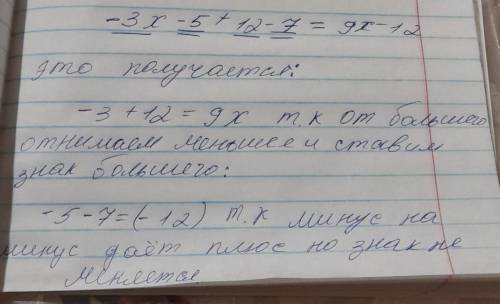 -3x -5 + 12 - 7 = 9x - 12
это получается:
-3 + 12 = 9x т.к от большего
отнимаем меньшее и ставим
знак большего:
-5 - 7 = (-12) т.к минус на
минус даёт плюс но знак не
меняется